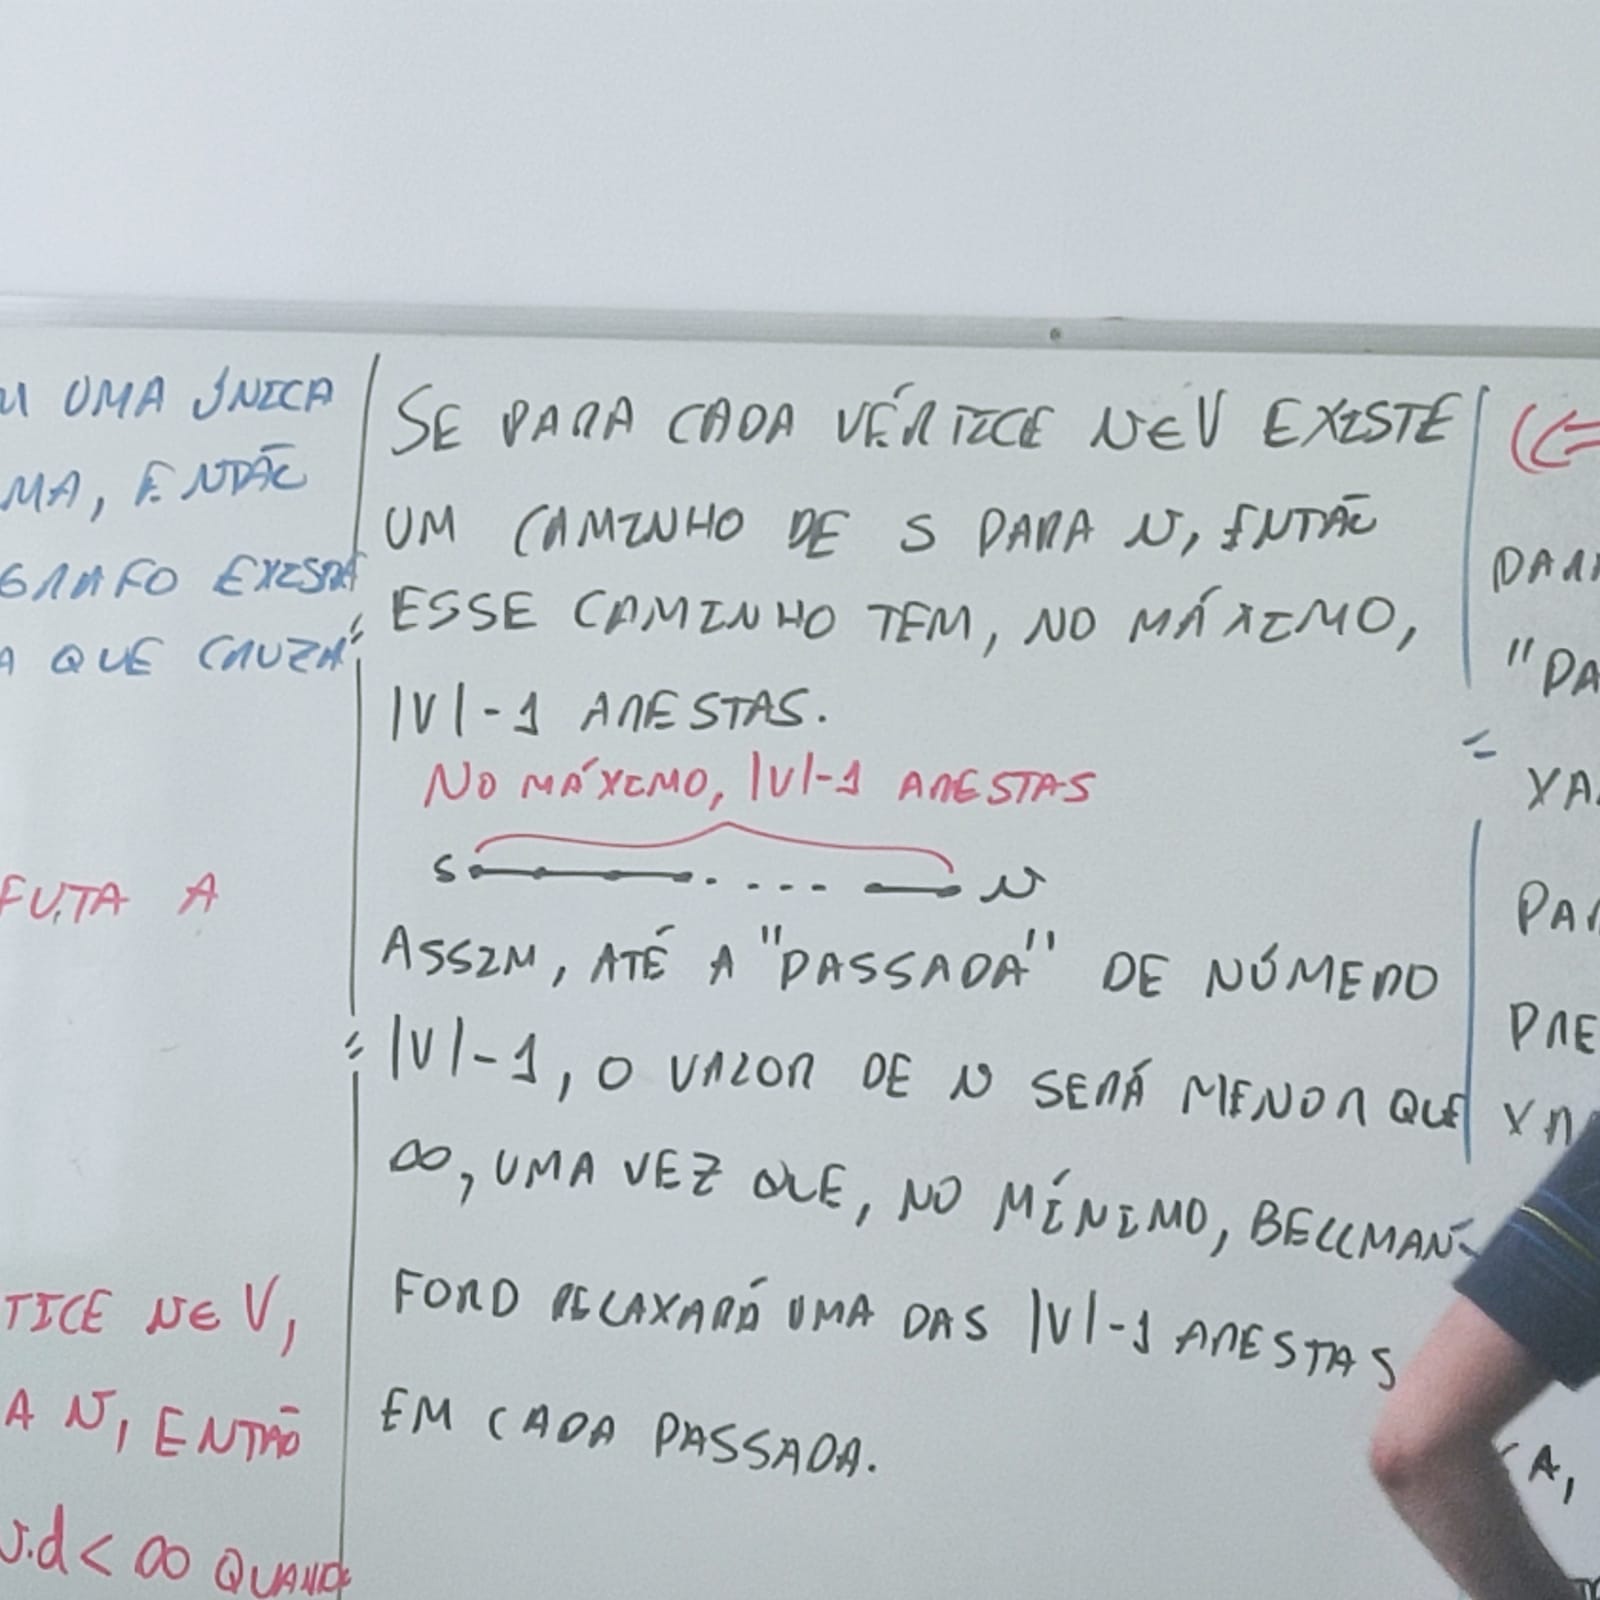 UMA ÚNICA
MA, ENTÃO
GRAFO EXISTA
A QUE CRUZA
FUTA A
TICE v∈V,
A v, ENTÃO
v.d < ∞ QUAND
SE PARA CADA VÉRTICE v∈V EXISTE
UM CAMINHO DE S PARA v, ENTÃO
ESSE CAMINHO TEM, NO MÁXIMO,
|V|-1 ARESTAS.
NO MÁXIMO, |V|-1 ARESTAS
S v
ASSIM, ATÉ A "PASSADA" DE NÚMERO
|V|-1, O VALOR DE v SERÁ MENOR QUE
∞, UMA VEZ QUE, NO MÍNIMO, BELLMAN-
FORD RELAXARÁ UMA DAS |V|-1 ARESTAS
EM CADA PASSADA.
(⇐
PARA
"PA
XA
PAR
PRE
XA
A,